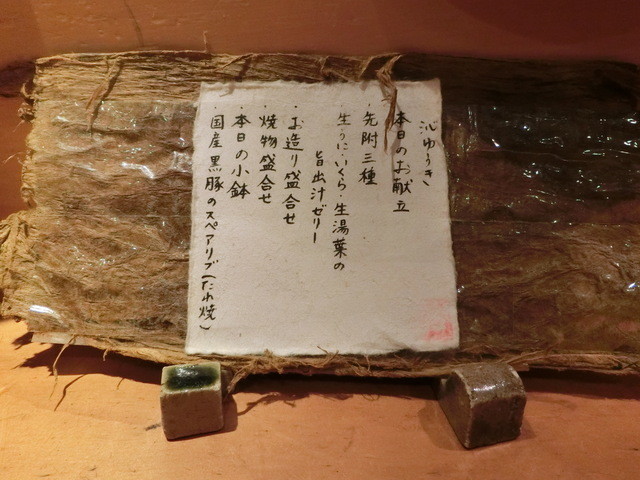 ゆうき
本日のお献立
・先附三種
・生うに・いくら・生湯葉の
旨出汁ゼリー
・お造り盛合せ
・焼物盛合せ
・本日の小鉢
・国産黒豚のスペアリブ(たれ焼)